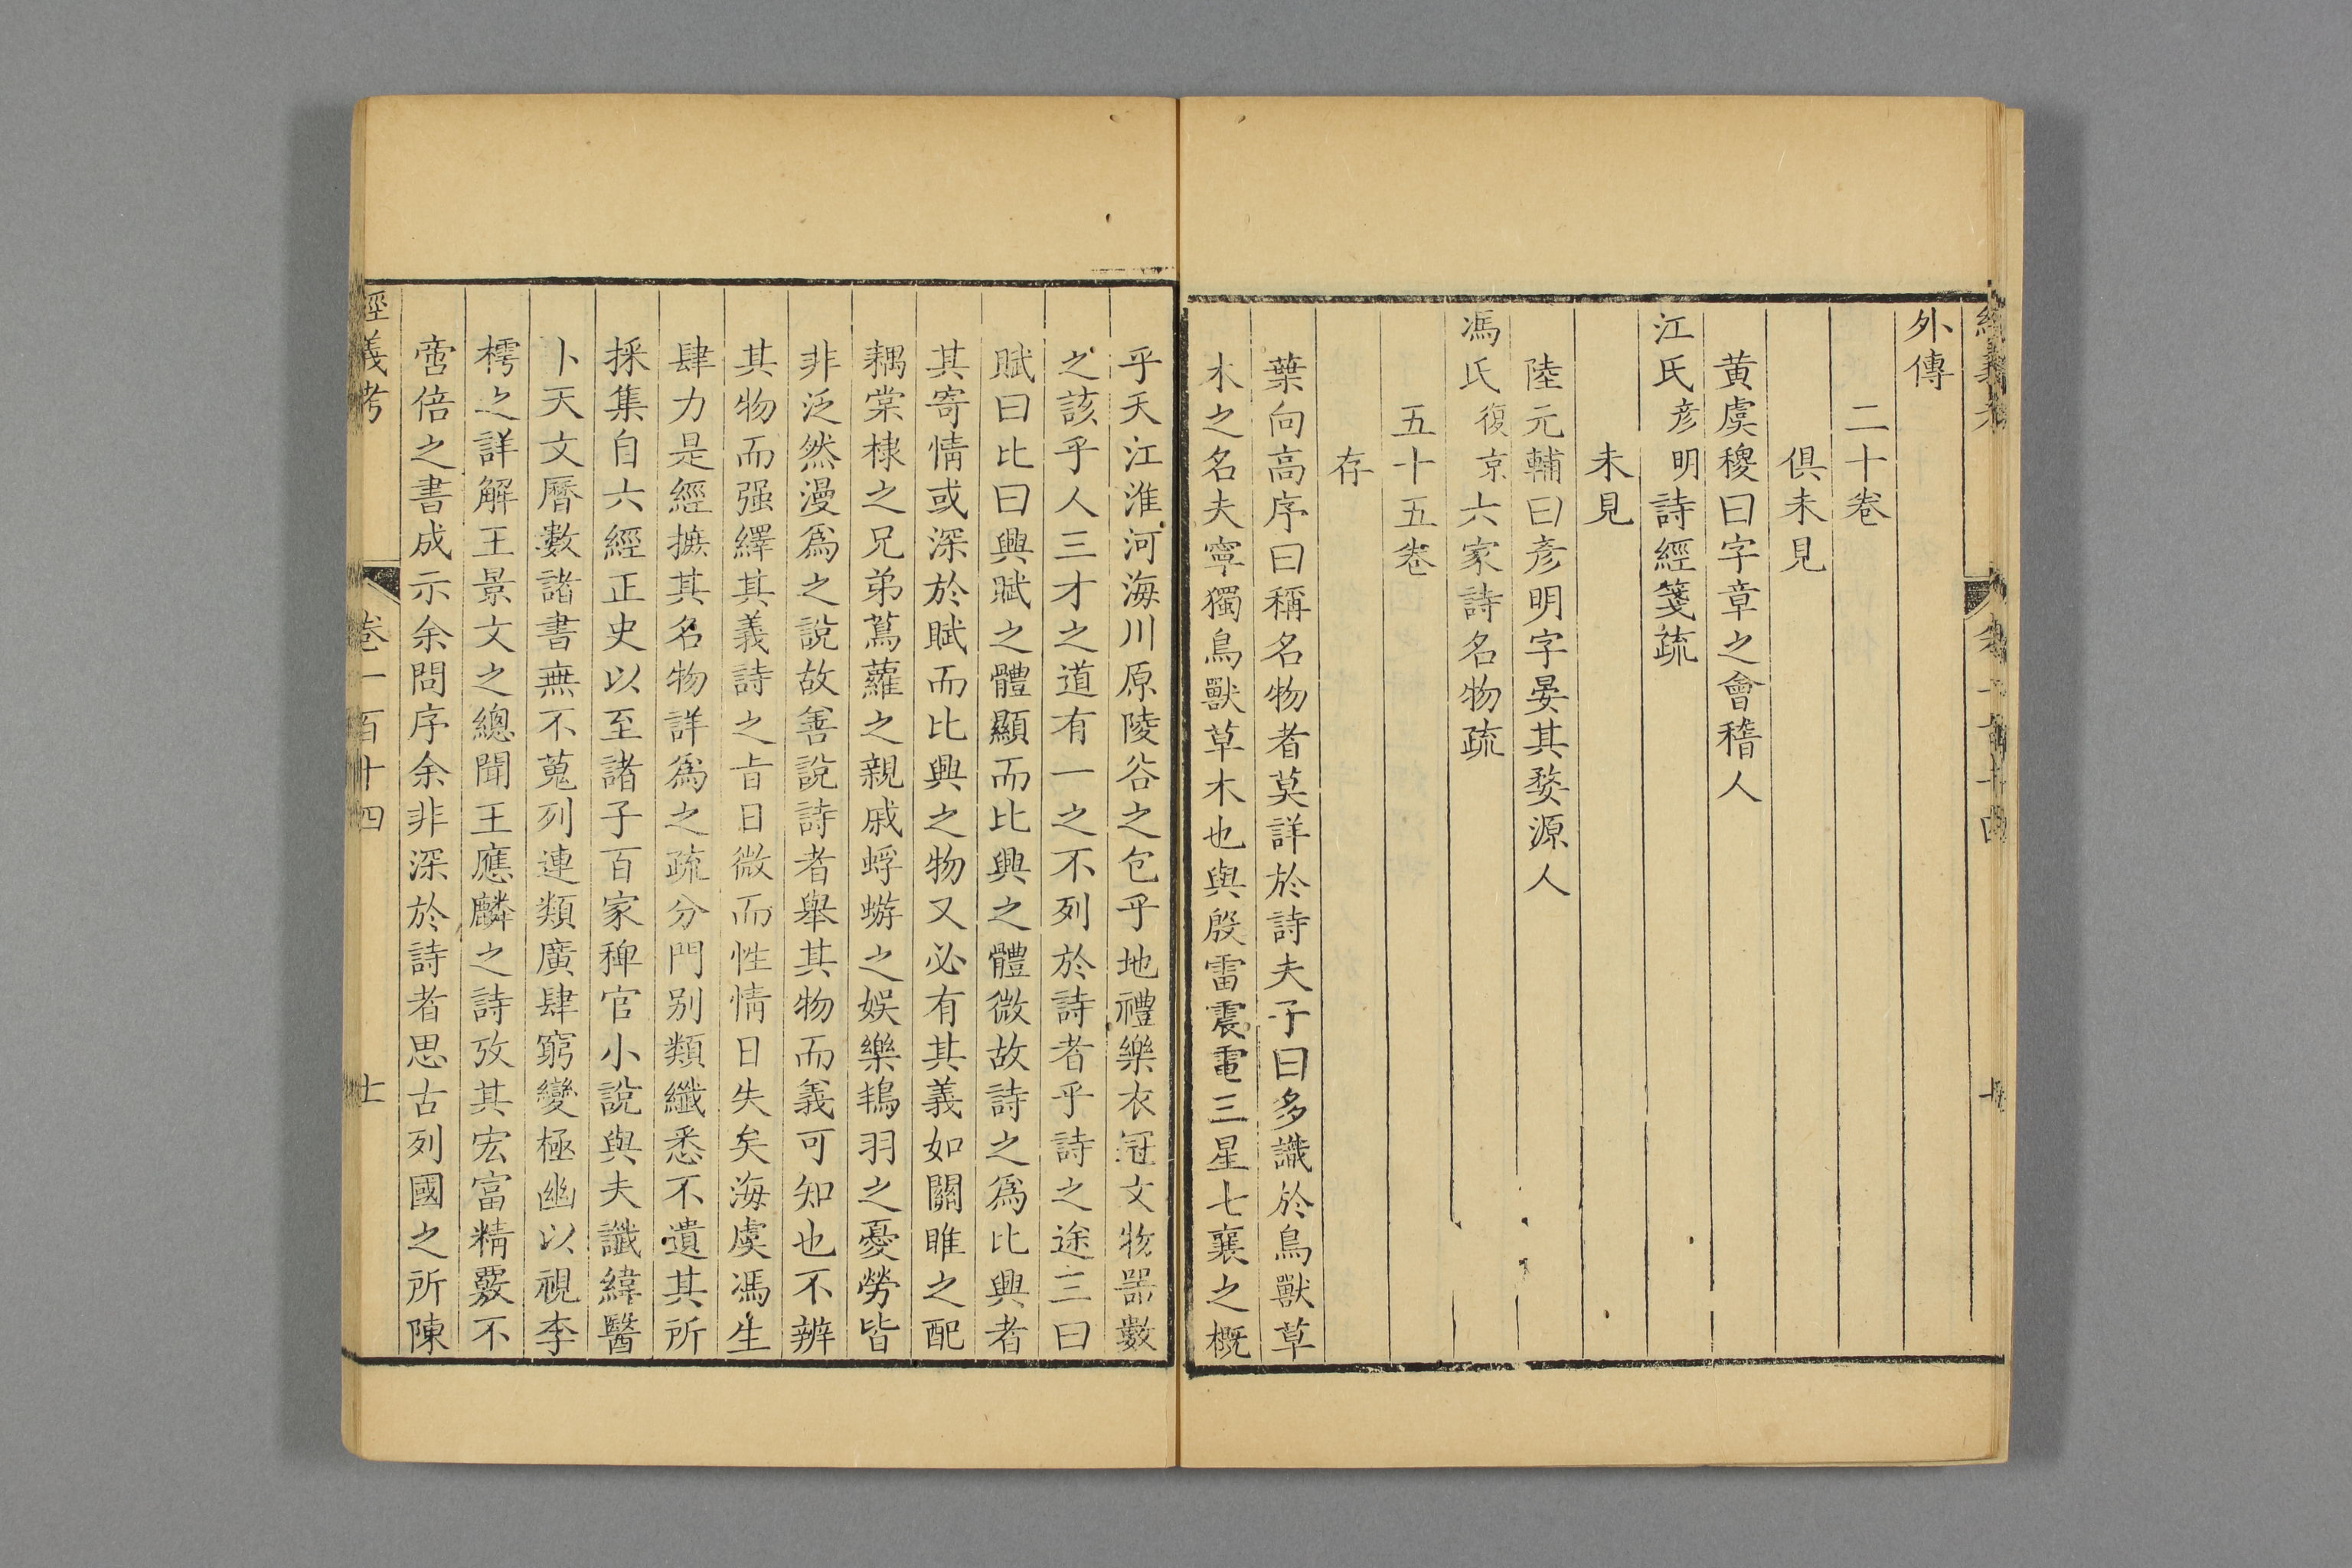 外傳
二十卷
俱未見
黃虞稷曰字章之會稽人
江氏彥明詩經箋疏
未見
陸元輔曰彥明字晏其婺源人
馮氏復京六家詩名物疏
五十五卷
存
葉向高序曰稱名物者莫詳於詩夫子曰多識於鳥獸草
木之名夫寧獨鳥獸草木也與殷雷震電三星七襄之概
乎天江淮河海川原陵谷之包乎地禮樂衣冠文物器數
之該乎人三才之道有一之不列於詩者乎詩之途三曰
賦曰比曰興賦之體顯而比興之體微故詩之爲比興者
其寄情或深於賦而比興之物又必有其義如關雎之配
耦棠棣之兄弟蔦蘿之親戚蜉蝣之娛樂鴇羽之憂勞皆
非泛然漫爲之說故善說詩者舉其物而義可知也不辨
其物而强繹其義詩之旨日微而性情日失矣海虞馮生
肆力是經摭其名物詳爲之疏分門别類纖悉不遺其所
採集自六經正史以至諸子百家稗官小說與夫讖緯醫
卜天文曆數諸書無不蒐列連類廣肆窮變極幽以視李
樗之詳解王景文之總聞王應麟之詩攷其宏富精覈不
啻倍之書成示余問序余非深於詩者思古列國之所陳
經義考
卷一百十四